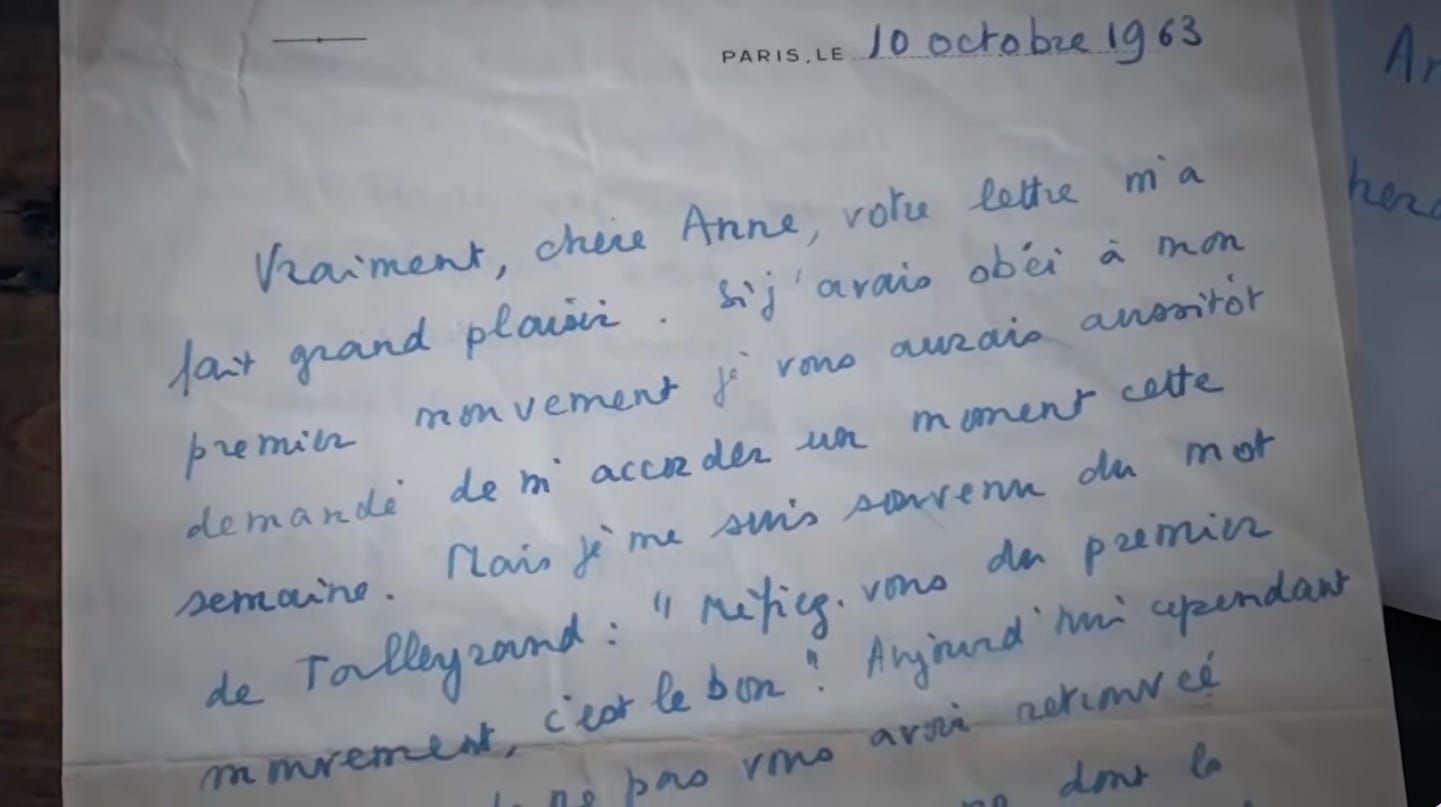 PARIS, LE 10 octobre 1963
Vraiment, chère Anne, votre lettre m'a
fait grand plaisir. Si j'avais obéi à mon
premier mouvement je vous aurais aussitôt
demandé de m'accorder un moment cette
semaine. Mais je me suis souvenu du mot
de Talleyrand : "Méfiez-vous du premier
mouvement, c'est le bon". Aujourd'hui cependant
ne pas vous avoir
dont la